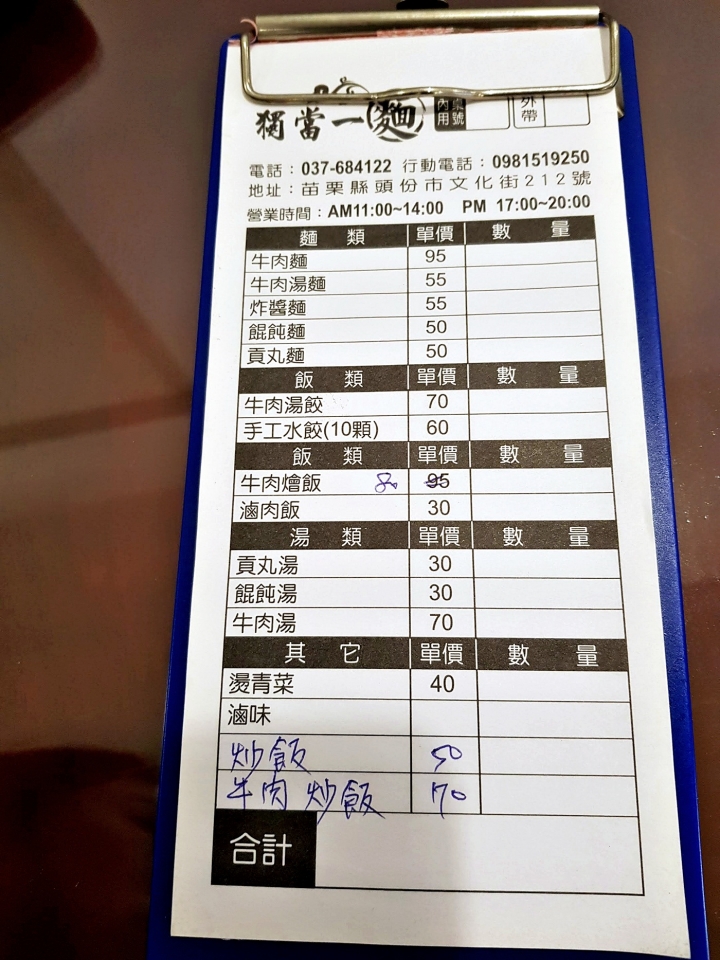 獨當一麵 內用 桌號 外帶
電話：037-684122 行動電話：0981519250
地址：苗栗縣頭份市文化街212號
營業時間：AM11:00~14:00 PM 17:00~20:00
麵 類 單價 數 量
牛肉麵 95
牛肉湯麵 55
炸醬麵 55
餛飩麵 50
貢丸麵 50
飯 類 單價 數 量
牛肉湯餃 70
手工水餃(10顆) 60
飯 類 單價 數 量
牛肉燴飯 80 95
滷肉飯 30
湯 類 單價 數 量
貢丸湯 30
餛飩湯 30
牛肉湯 70
其 它 單價 數 量
燙青菜 40
滷味
炒飯 50
牛肉炒飯 70
合計